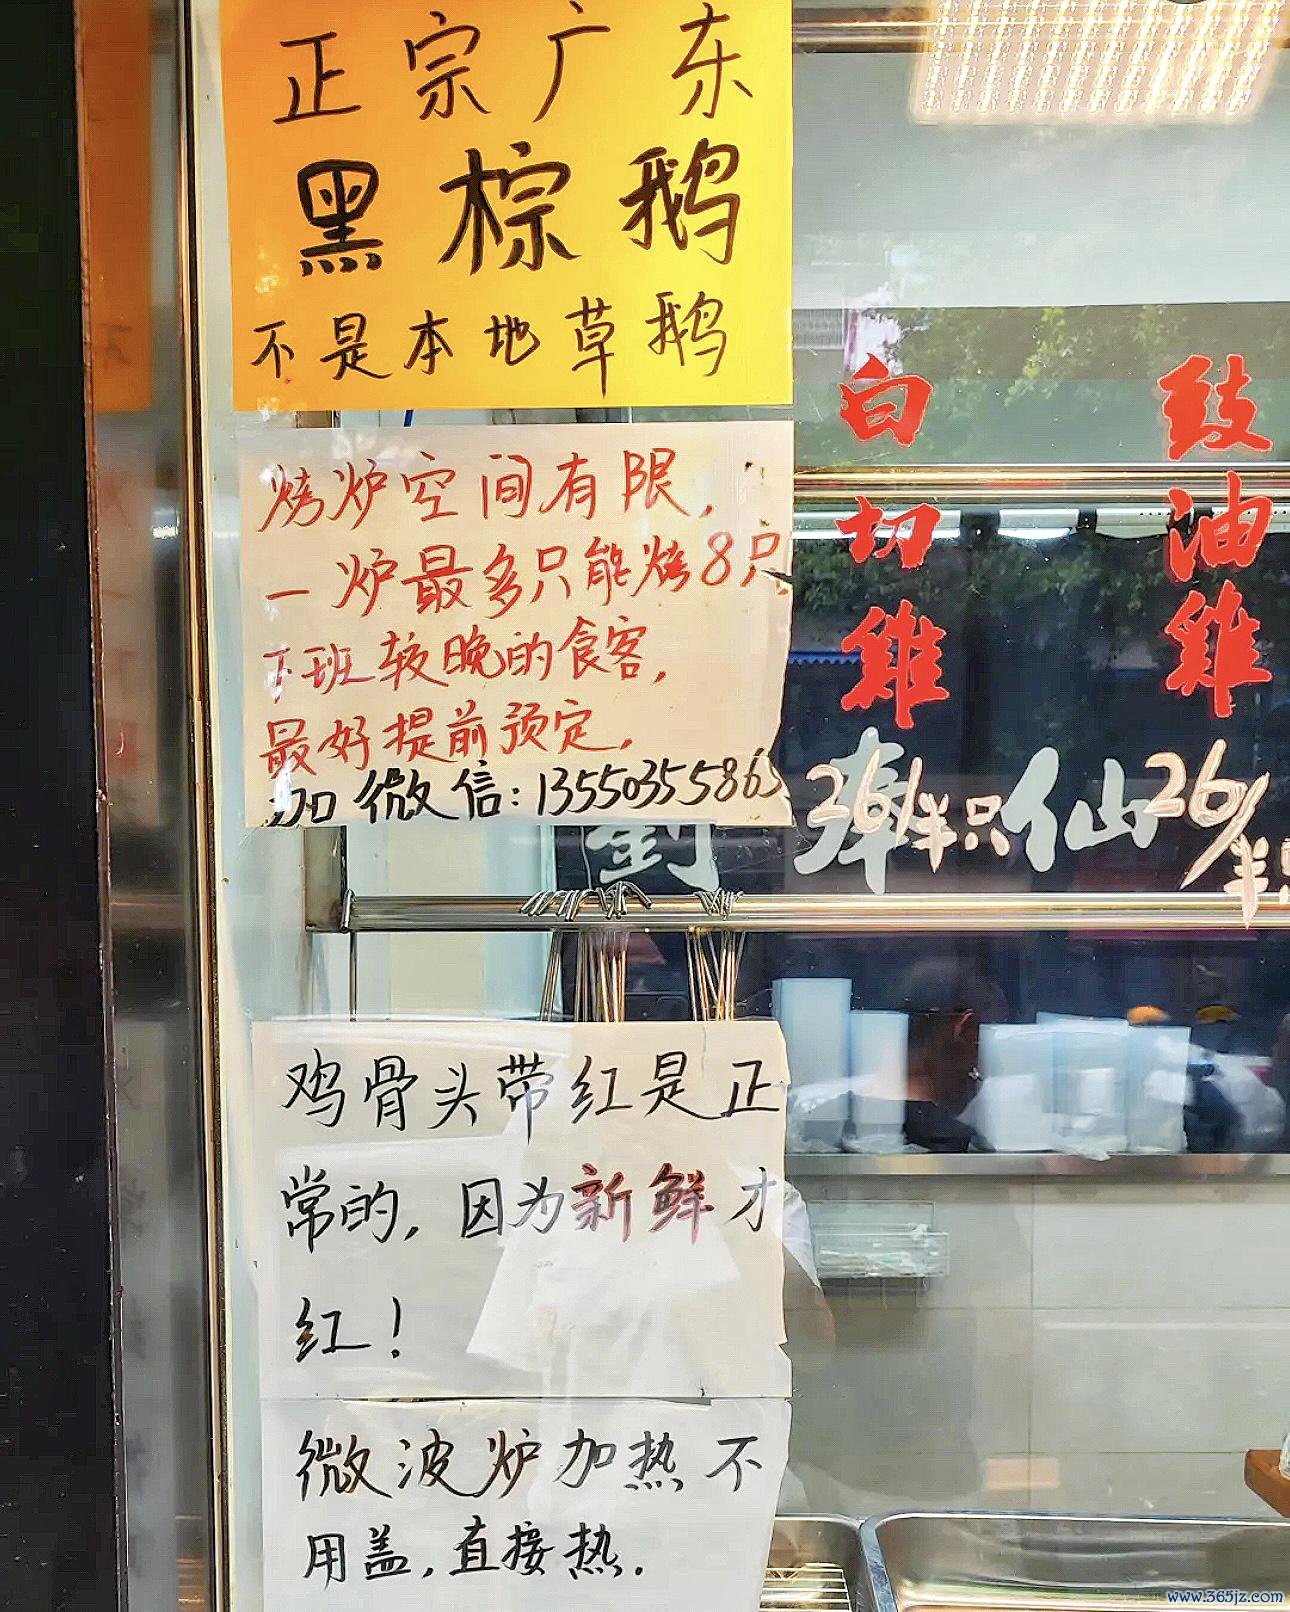 正宗广东
黑棕鹅
不是本地草鹅
烤炉空间有限，
一炉最多只能烤8只
下班较晚的食客，
最好提前预定，
加微信：13550355865
鸡骨头带红是正
常的，因为新鲜才
红！
微波炉加热不
用盖，直接热.
白切雞
26/半只
豉油雞
26/半
仙
www.365jz.com